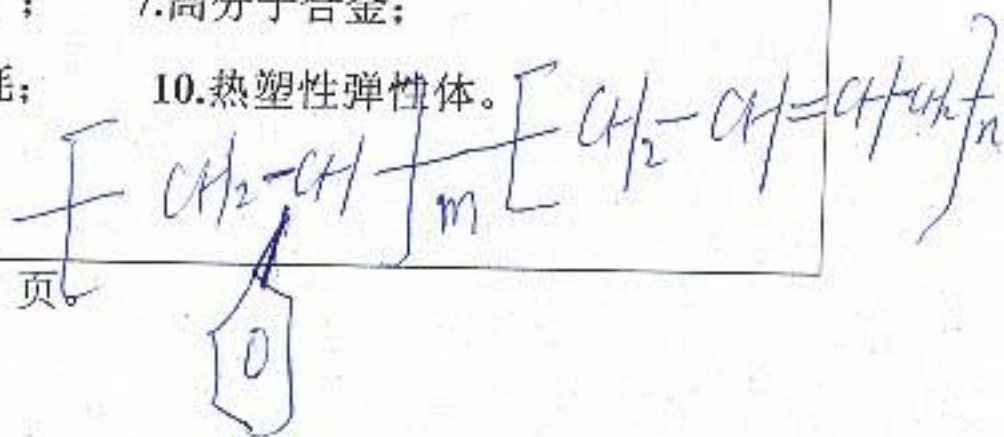 ; 7.高分子合金;
耗; 10.热塑性弹性体。
[CH2-CH]m[CH2-CH=CH-CH2]n
页。